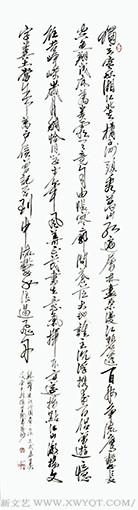 独立寒秋湘江北去橘子洲头看万山红遍层林尽染漫江碧透百舸争流鹰击长
空鱼翔浅底万类霜天竞自由怅寥廓问苍茫大地谁主沉浮携来百侣曾游忆
往昔峥嵘岁月稠恰同学少年风华正茂书生意气挥斥方遒指点江山激扬文
字粪土当年万户侯曾记否到中流击水浪遏飞舟
新文艺（WWW.XWYQT.COM）